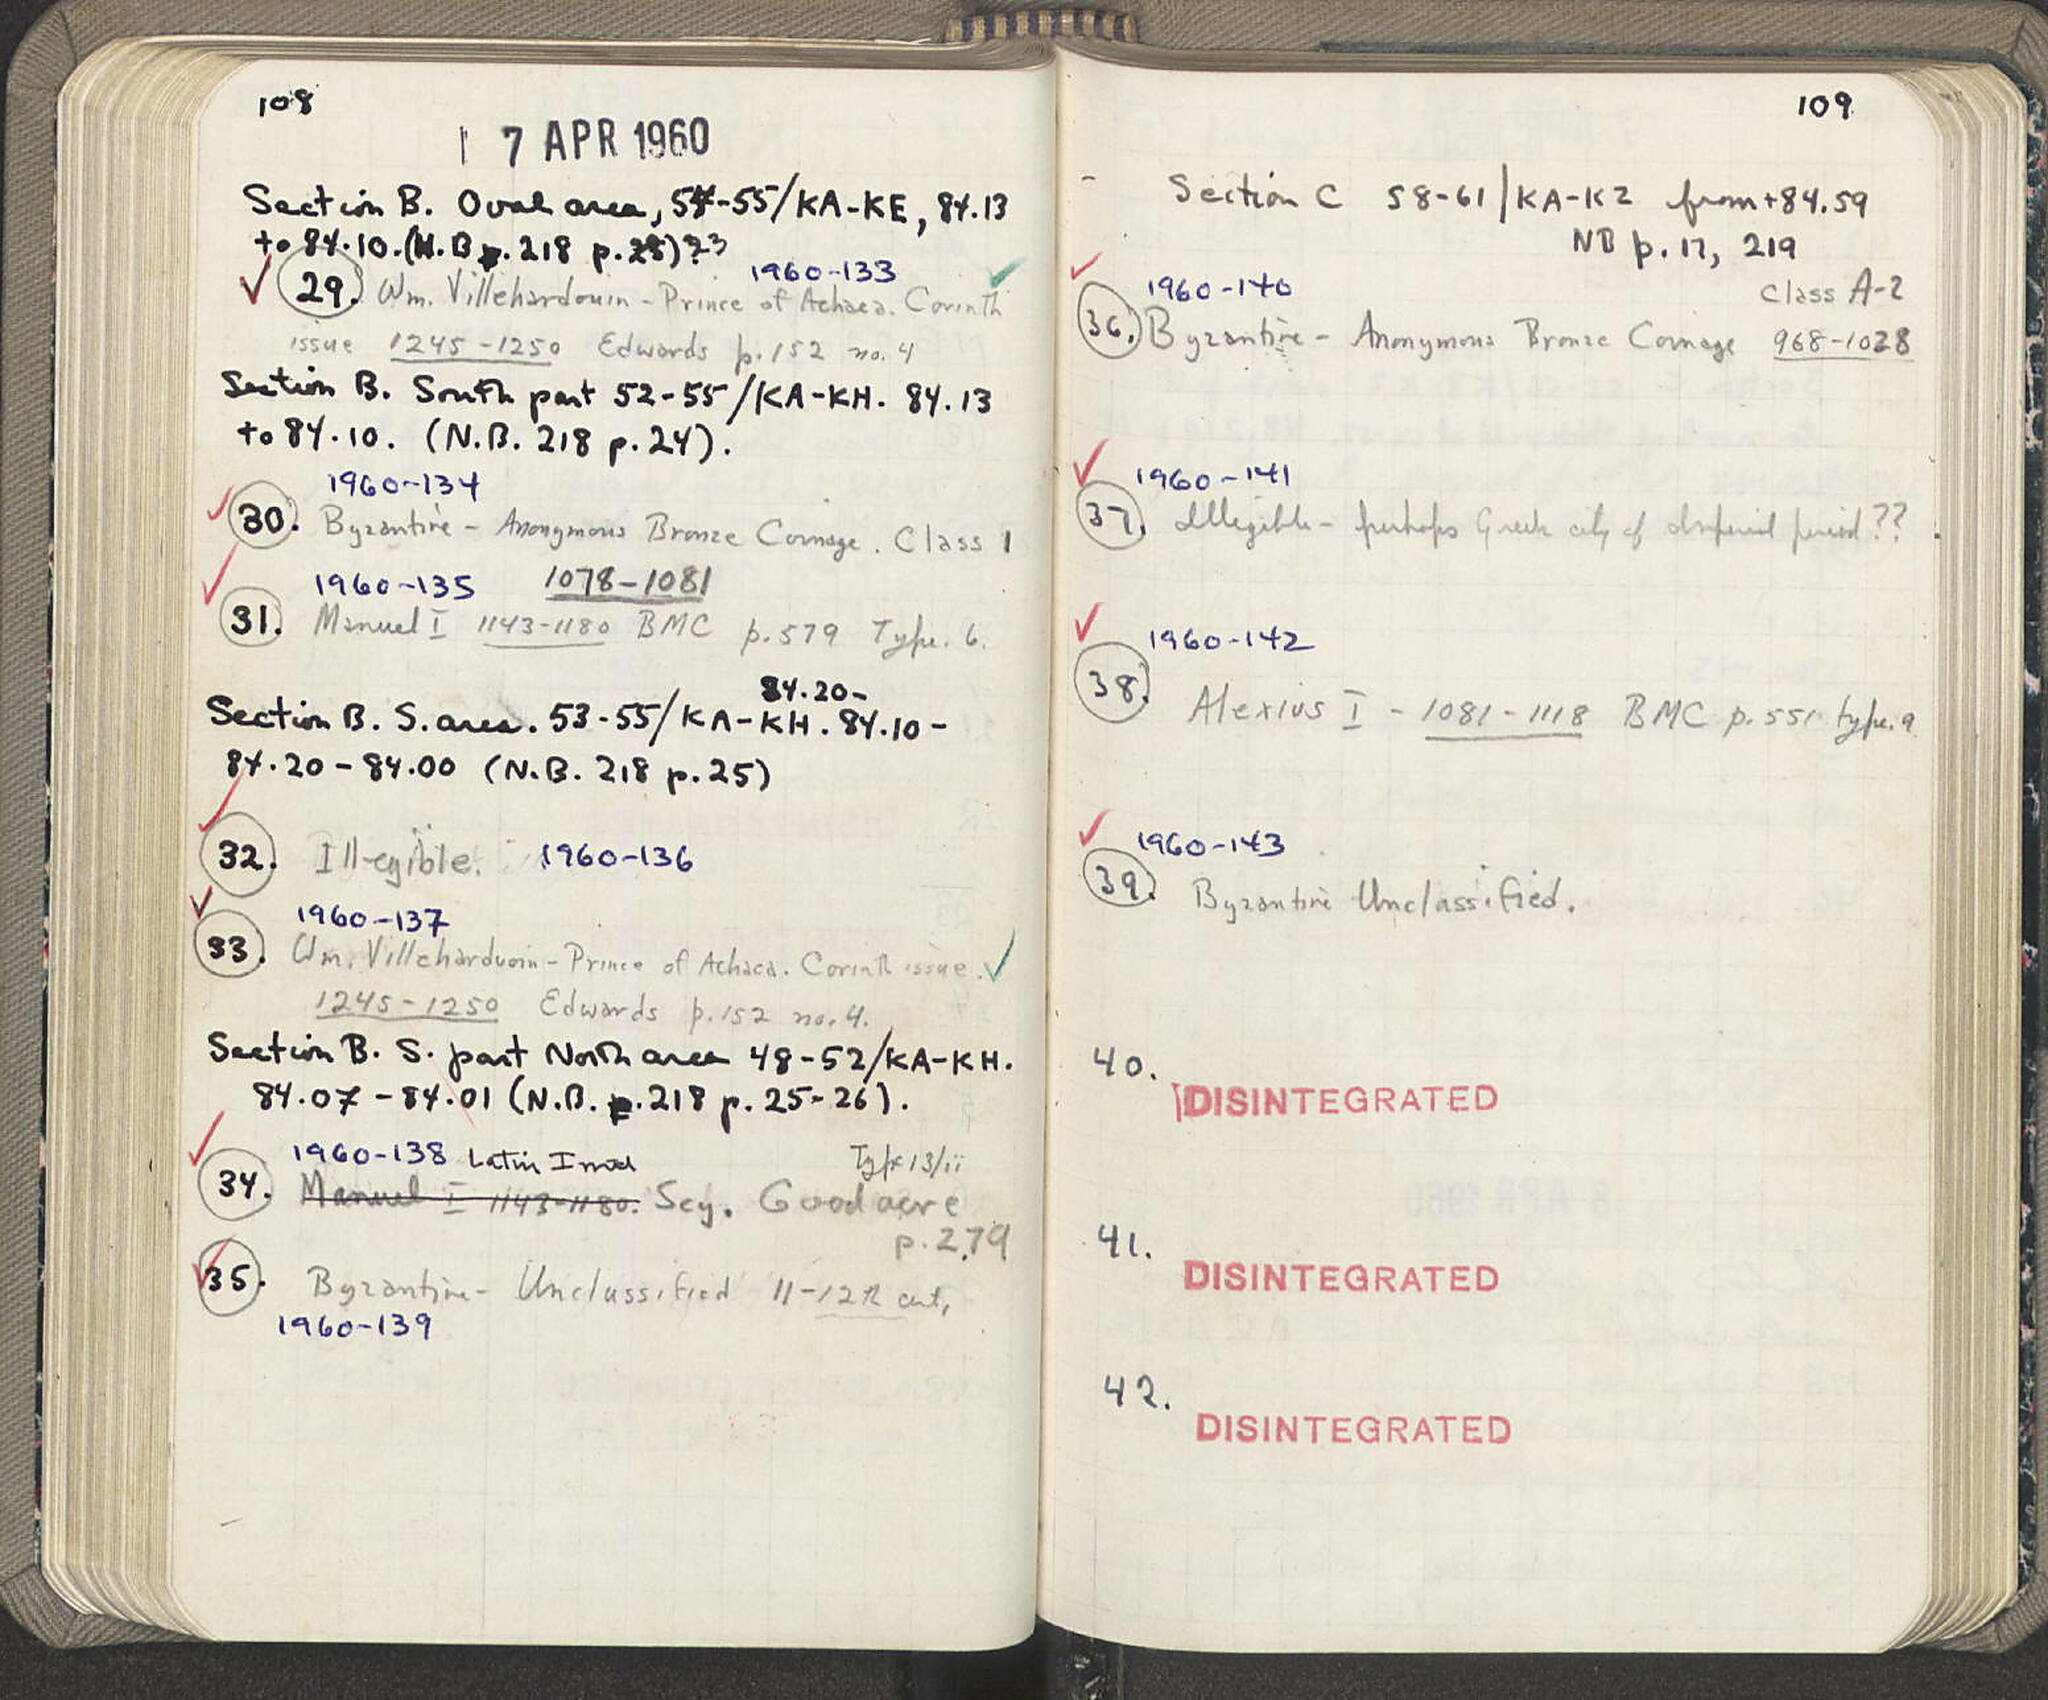 108
1 7 APR 1960
Section B. Oval area, 54-55/KA-KE, 84.13
to 84.10. (N.B p. 218 p. 23
1960-133
29. Wm. Villehardouin - Prince of Achaea. Corinth
issue 1245-1250 Edwards p. 152 no. 4
Section B. South part 52-55/KA-KH. 84.13
to 84.10. (N.B. 218 p. 24).
1960-134
30. Byzantine - Anonymous Bronze Coinage. Class I
1960-135 1078-1081
31. Manuel I 1143-1180 BMC p. 579 Type. 6.
84.20-
Section B. S. area. 53-55/KA-KH. 84.10-
84.20-84.00 (N.B. 218 p. 25)
32. Illegible. 1960-136
1960-137
33. Wm. Villehardouin - Prince of Achaea. Corinth issue.
1245-1250 Edwards p. 152 no. 4.
Section B. S. part North area 48-52/KA-KH.
84.07-84.01 (N.B. p. 218 p. 25-26).
1960-138 Latin Imit Type 13/ii
34. Manuel I 1143-1180. Scy. Goodacre
p. 279
35. Byzantine - Unclassified 11-12th cent.
1960-139
109
Section C 58-61/KA-KZ from +84.59
NB p. 17, 219
1960-140 Class A-2
36. Byzantine - Anonymous Bronze Coinage 968-1028
1960-141
37. Illegible - perhaps Greek city of Imperial period??
1960-142
38. Alexius I - 1081-1118 BMC p. 551 type. 9
1960-143
39. Byzantine Unclassified.
40.
DISINTEGRATED
41.
DISINTEGRATED
42.
DISINTEGRATED